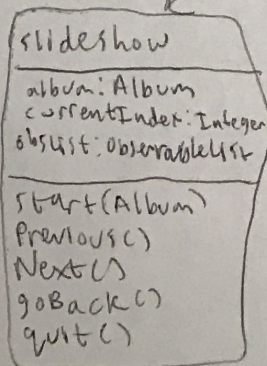 slideshow
album: Album
currentIndex: Integer
obsList: ObservableList
start(Album)
Previous()
Next()
goBack()
quit()